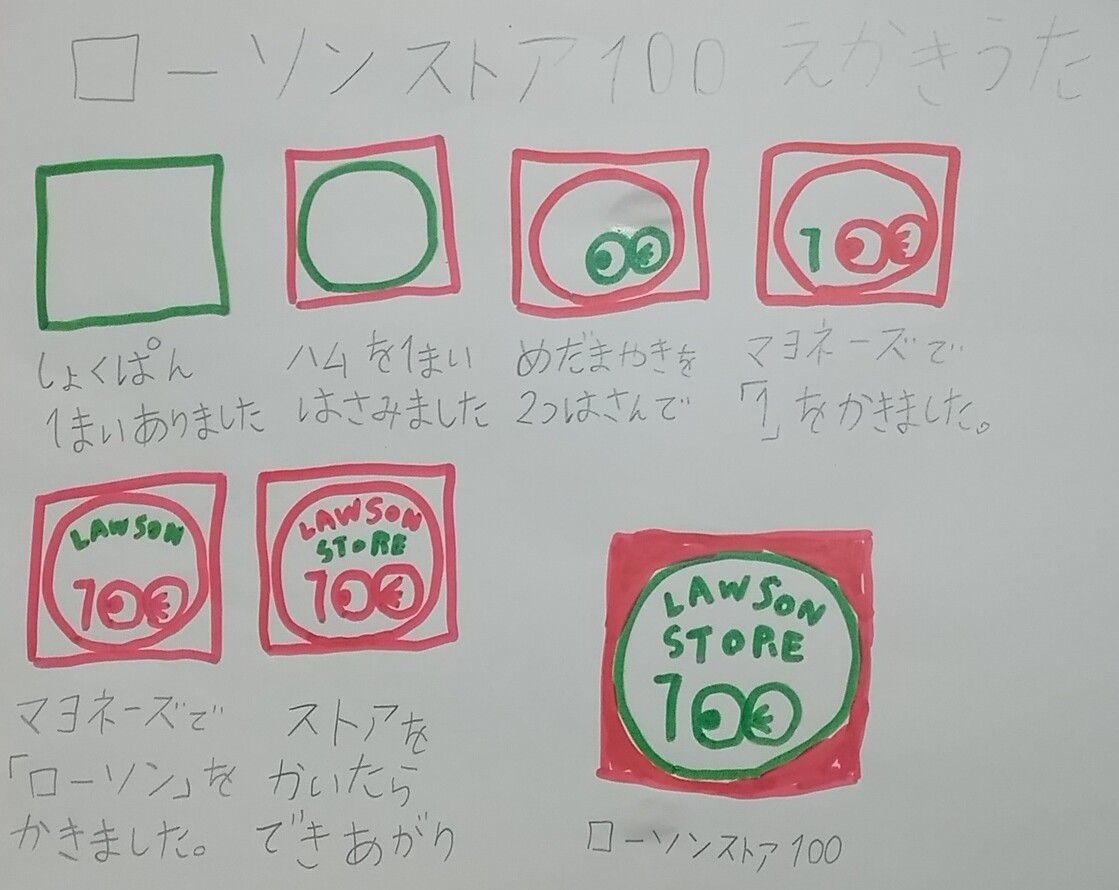 ローソンストア100 えかきうた
しょくぱん
1まいありました
ハムを1まい
はさみました
めだまやきを
2つはさんで
100
マヨネーズで
「1」をかきました。
LAWSON
100
マヨネーズで
「ローソン」を
かきました。
LAWSON
STORE
100
ストアを
かいたら
できあがり
LAWSON
STORE
100
ローソンストア100